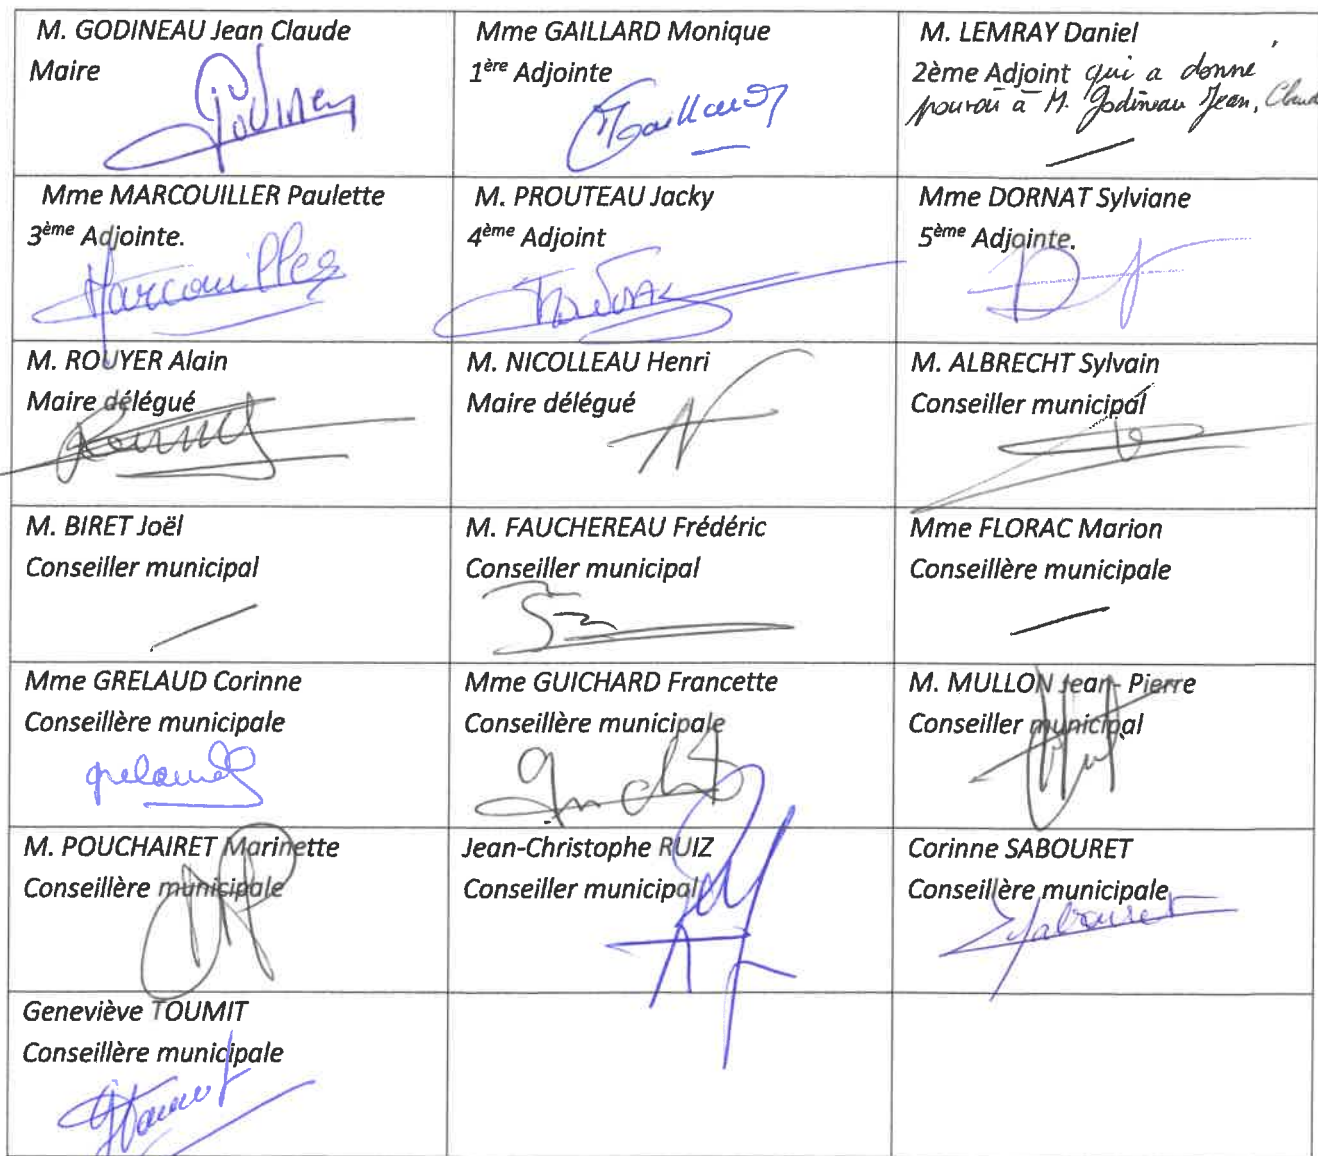 M. GODINEAU Jean Claude
Maire
Godineau
Mme GAILLARD Monique
1ère Adjointe
Gaillard
M. LEMRAY Daniel
2ème Adjoint qui a donné
pouvoir à M. Godineau Jean, Claude
Mme MARCOUILLER Paulette
3ème Adjointe.
Marcouiller
M. PROUTEAU Jacky
4ème Adjoint
Mme DORNAT Sylviane
5ème Adjointe.
M. ROUYER Alain
Maire délégué
M. NICOLLEAU Henri
Maire délégué
M. ALBRECHT Sylvain
Conseiller municipal
M. BIRET Joël
Conseiller municipal
M. FAUCHEREAU Frédéric
Conseiller municipal
Mme FLORAC Marion
Conseillère municipale
Mme GRELAUD Corinne
Conseillère municipale
grelaud
Mme GUICHARD Francette
Conseillère municipale
M. MULLON Jean- Pierre
Conseiller municipal
M. POUCHAIRET Marinette
Conseillère municipale
Jean-Christophe RUIZ
Conseiller municipal
Corinne SABOURET
Conseillère municipale
Sabouret
Geneviève TOUMIT
Conseillère municipale